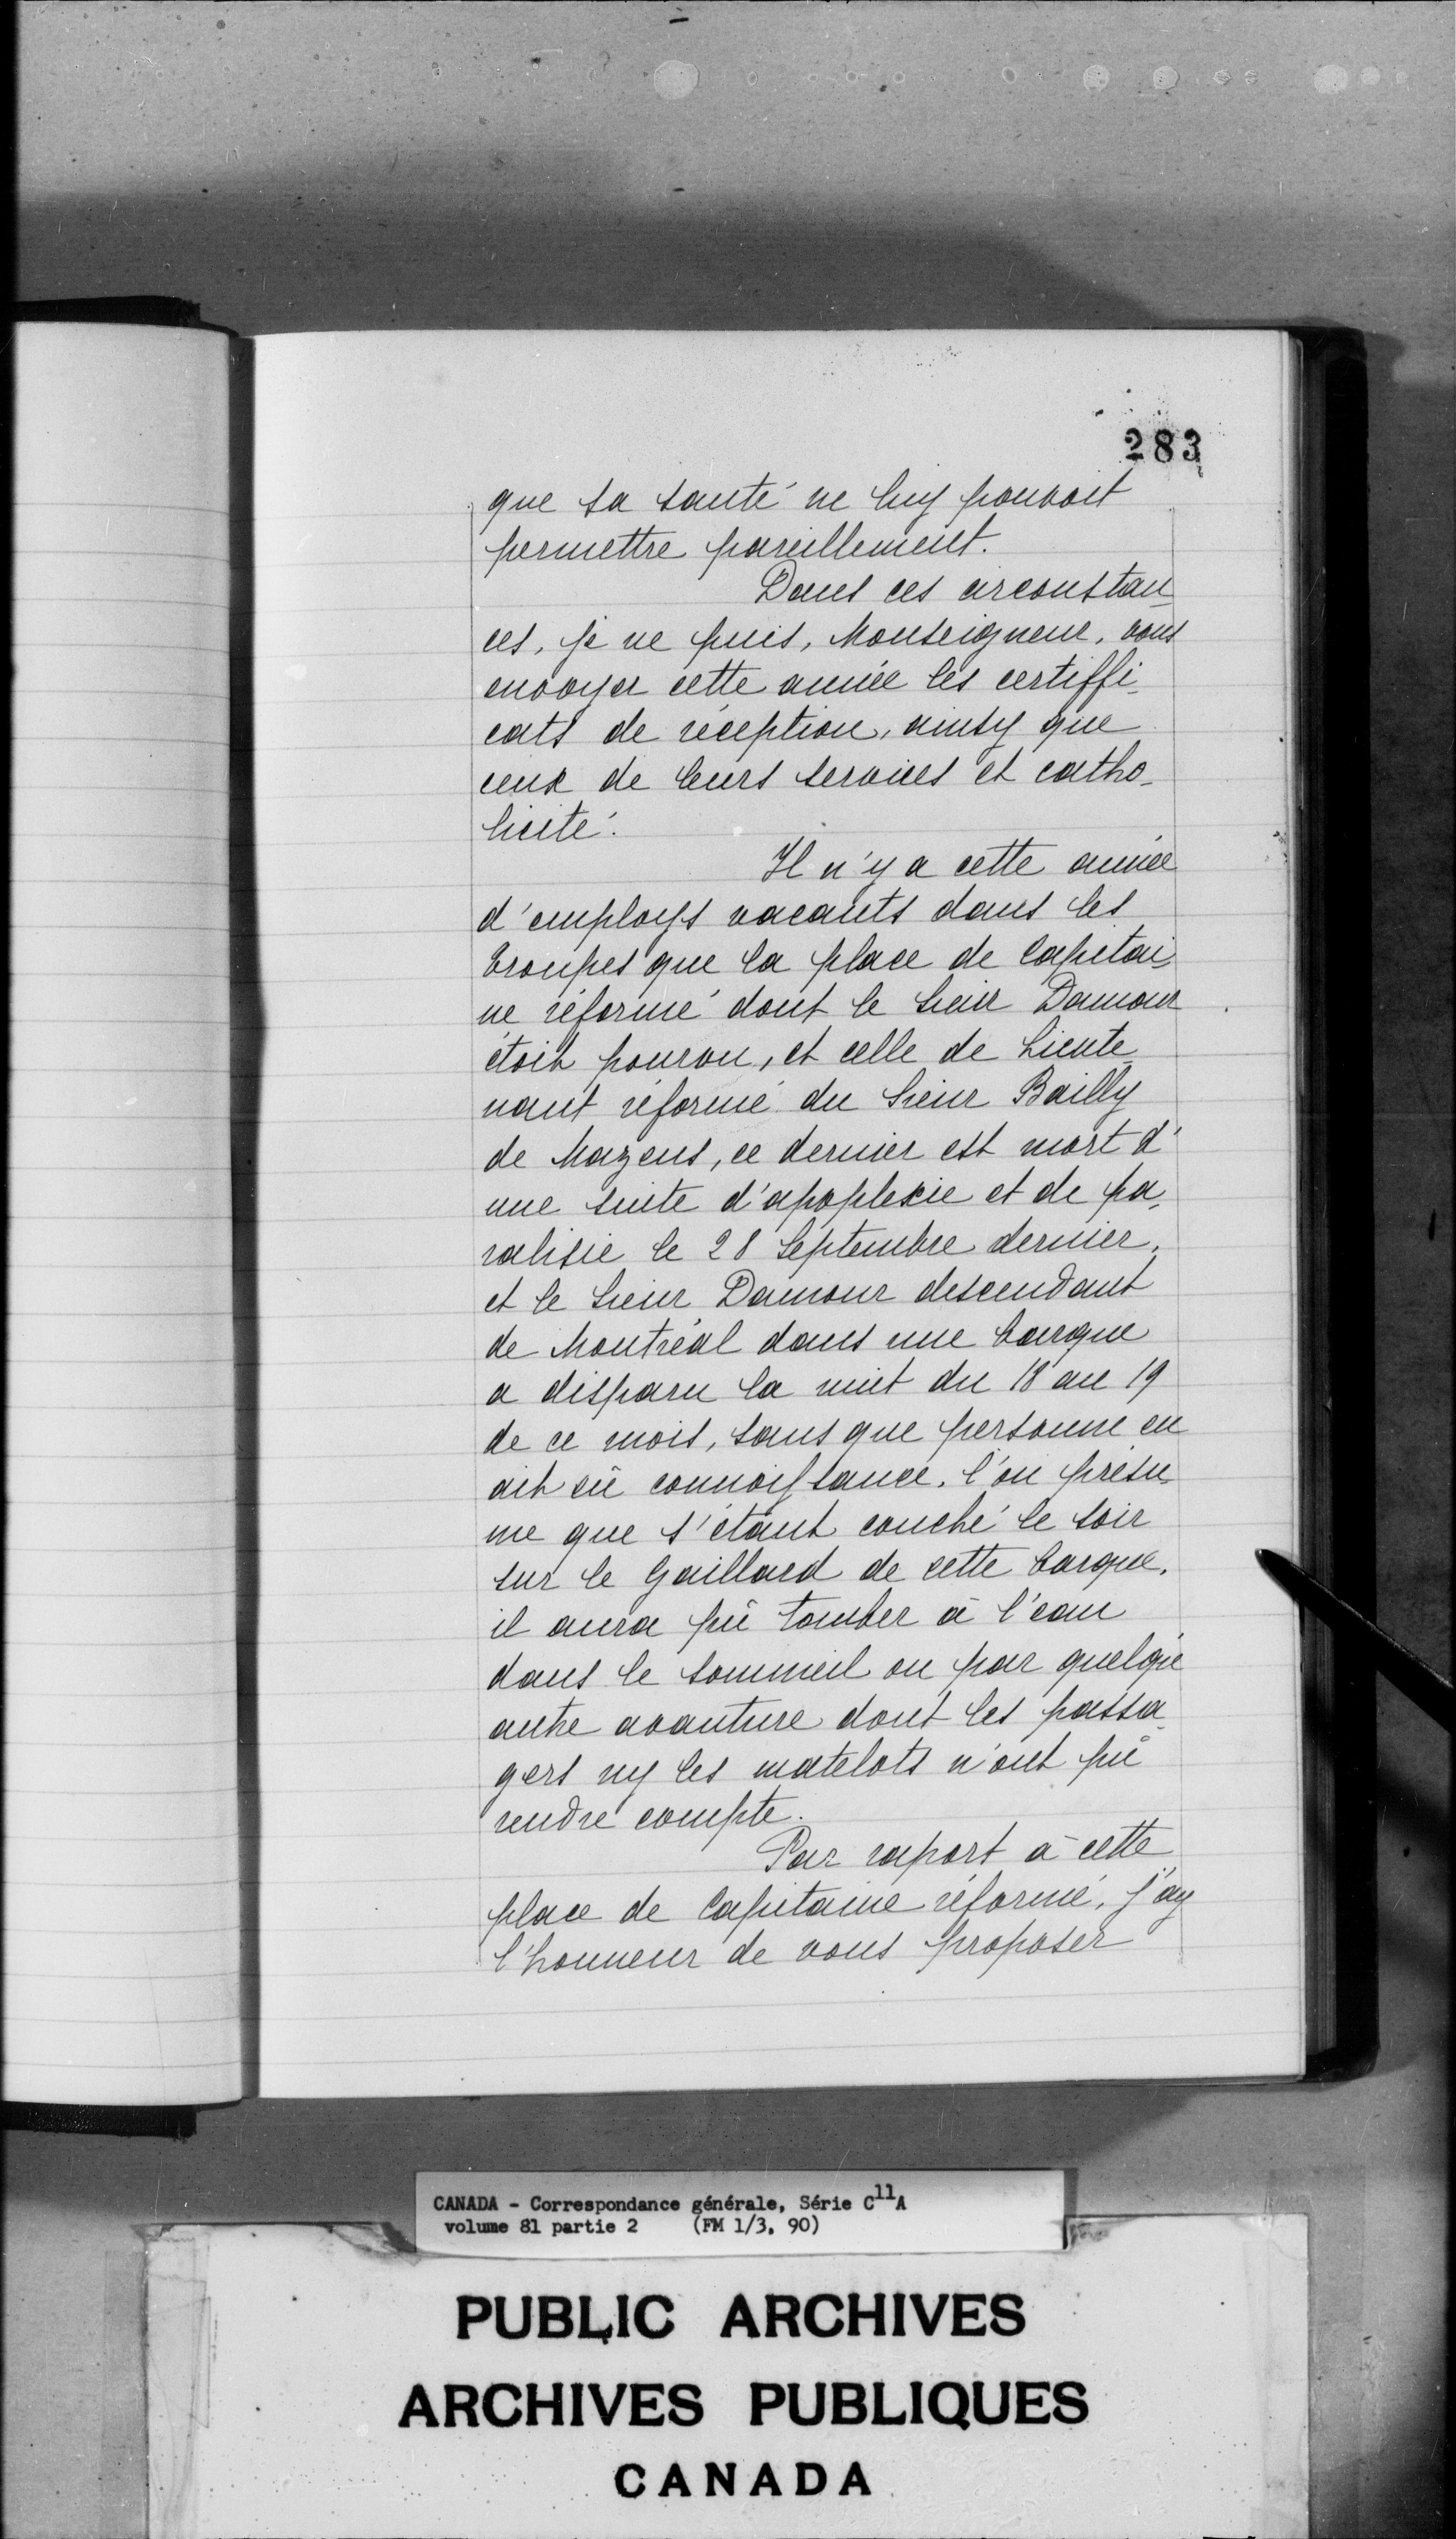 283
que sa santé ne luy pouvoit
permettre pareillement.
Dans ces circonstan-
ces, je ne puis, Monseigneur, vous
envoyer cette année les certiffi-
cats de réception, ainsy que
ceux de leurs services et catho-
licité.
Il n'y a cette année
d'employs vacants dans les
troupes que la place de Capitai-
ne réformé dont le Sieur Damour
étoit pourvu, et celle de Lieute-
nant réformé du Sieur Bailly
de Mazens, ce dernier est mort d'
une suite d'apoplexie et de pa-
ralisie le 28 Septembre dernier,
et le Sieur Damour descendant
de Montréal dans une barque
a disparu la nuit du 18 au 19
de ce mois, sans que personne en
ait eü connoissance. l'on présu-
me que s'étant couché le soir
sur le Gaillard de cette barque,
il aura pû tomber à l'eau
dans le sommeil ou par quelque
autre avanture dont les passa-
gers ny les matelots n'ont pû
rendre compte.
Par raport à cette
place de Capitaine réformé, j'ay
l'honneur de vous proposer
CANADA - Correspondance générale, Série C11A
volume 81 partie 2 (FM 1/3, 90)
PUBLIC ARCHIVES
ARCHIVES PUBLIQUES
CANADA